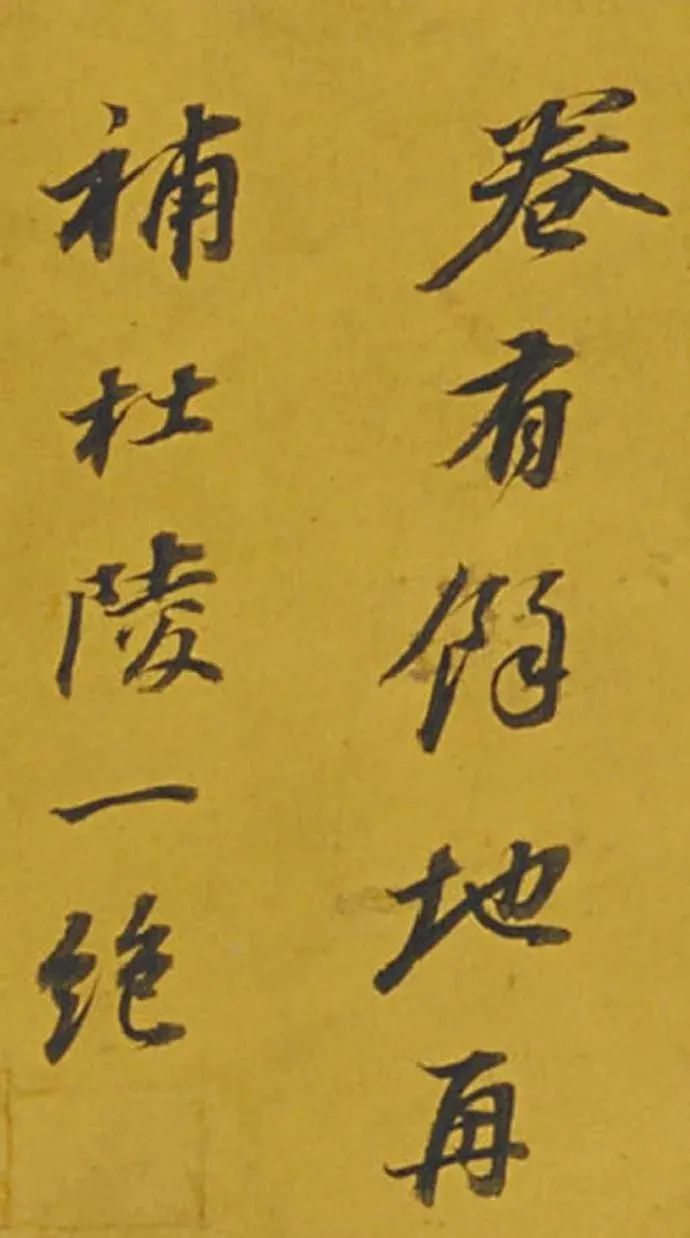 卷有餘地再
補杜陵一絶